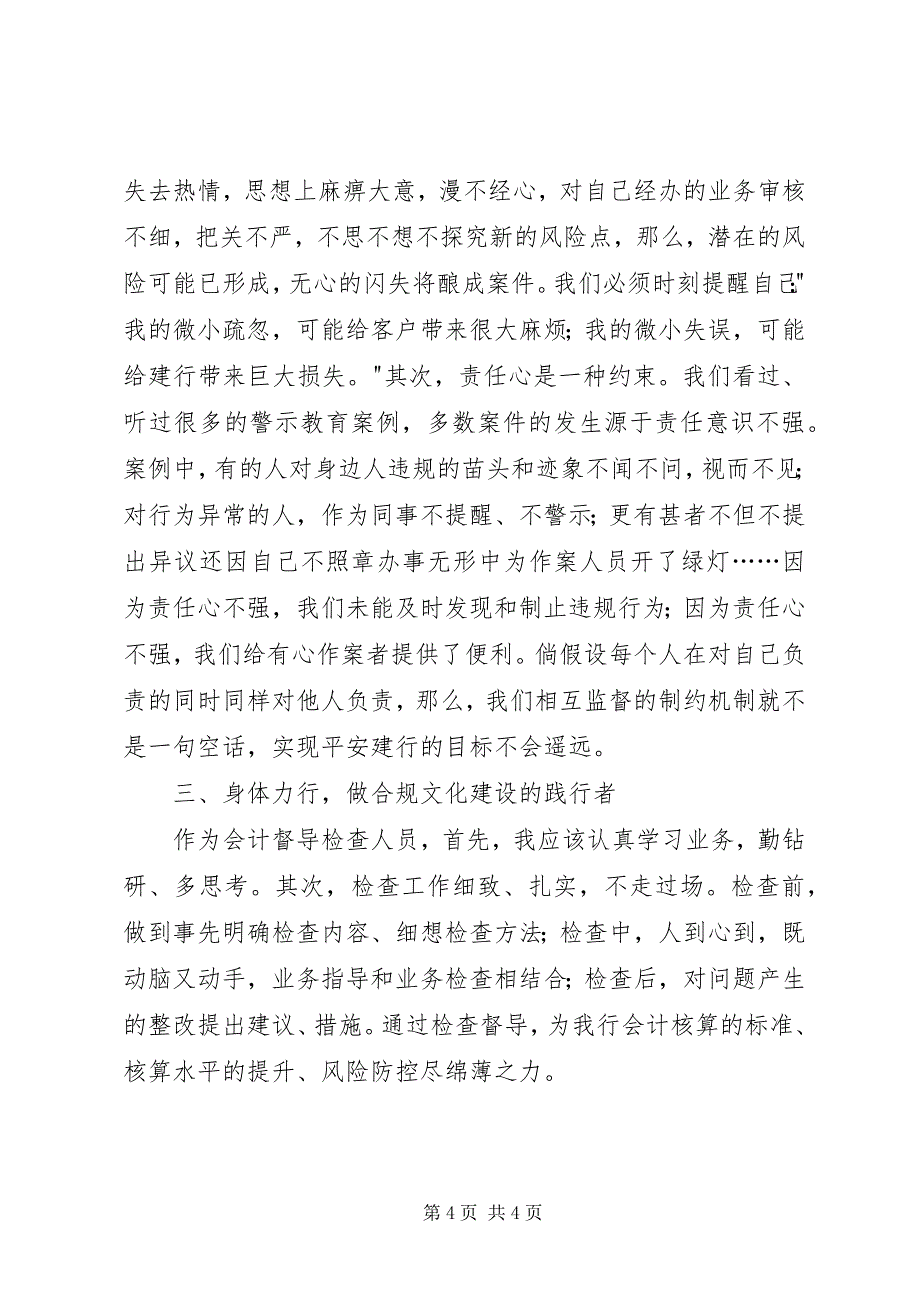 失去热情，思想上麻痹大意，漫不经心，对自己经办的业务审核
不细，把关不严，不思不想不探究新的风险点，那么，潜在的风
险可能已形成，无心的闪失将酿成案件。我们必须时刻提醒自己："
我的微小疏忽，可能给客户带来很大麻烦；我的微小失误，可能
给建行带来巨大损失。"其次，责任心是一种约束。我们看过、
听过很多的警示教育案例，多数案件的发生源于责任意识不强。
案例中，有的人对身边人违规的苗头和迹象不闻不问，视而不见；
对行为异常的人，作为同事不提醒、不警示；更有甚者不但不提
出异议还因自己不照章办事无形中为作案人员开了绿灯……因
为责任心不强，我们未能及时发现和制止违规行为；因为责任心
不强，我们给有心作案者提供了便利。倘假设每个人在对自己负
责的同时同样对他人负责，那么，我们相互监督的制约机制就不
是一句空话，实现平安建行的目标不会遥远。
三、身体力行，做合规文化建设的践行者
作为会计督导检查人员，首先，我应该认真学习业务，勤钻
研、多思考。其次，检查工作细致、扎实，不走过场。检查前，
做到事先明确检查内容、细想检查方法；检查中，人到心到，既
动脑又动手，业务指导和业务检查相结合；检查后，对问题产生
的整改提出建议、措施。通过检查督导，为我行会计核算的标准、
核算水平的提升、风险防控尽绵薄之力。
第 4 页 共 4 页